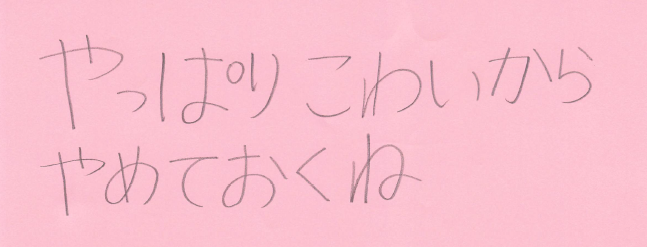 やっぱりこわいから
やめておくね